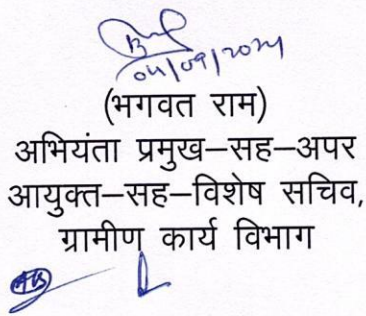 04/09/2024
(भगवत राम)
अभियंता प्रमुख–सह–अपर
आयुक्त–सह–विशेष सचिव,
ग्रामीण कार्य विभाग